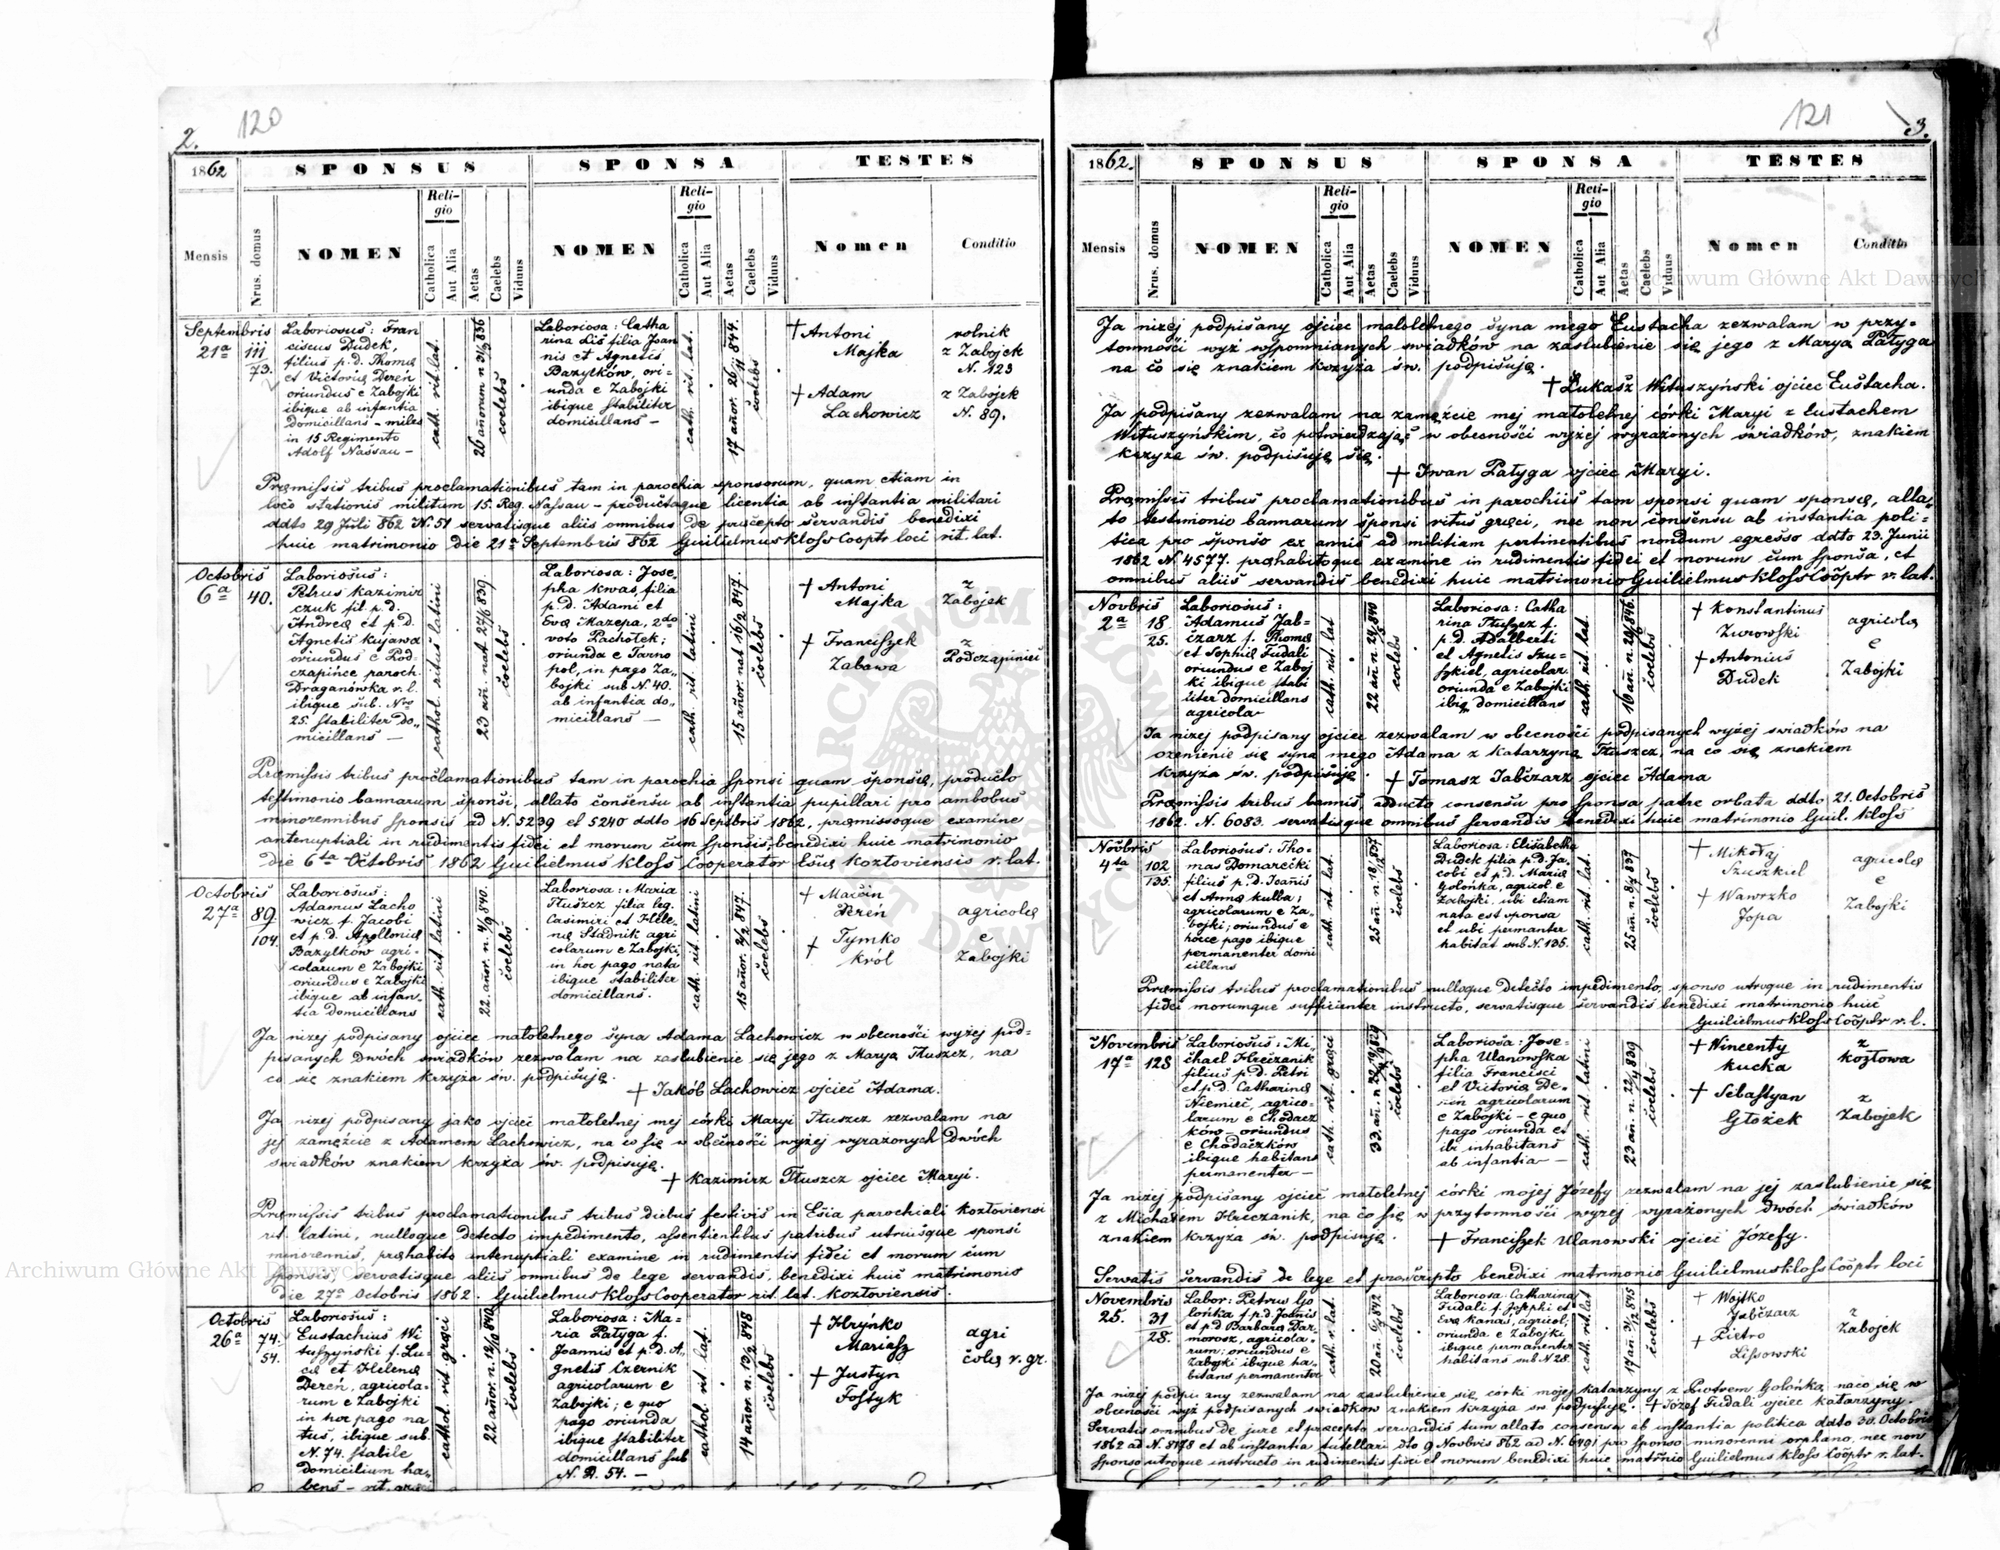 2.
120
1862
SPONSUS
SPONSA
TESTES
Mensis
Nrus. domus
NOMEN
Religio
Catholica
Aut Alia
Aetas
Caelebs
Viduus
NOMEN
Religio
Catholica
Aut Alia
Aetas
Caelebs
Viduus
Nomen
Conditio
Septembris
21a
111
73.
Laboriosus: Fran
ciscus Dudek,
filius p.d. Thomæ
et Victoriæ Dereń
oriundus e Zabojki
ibique ab infantia
domicillans – miles
in 15 Regimento
Adolf Nassau –
cath. rit. lat.
coelebs
Laboriosa: Catha
rina Liś filia Joan
nis et Agnetis
Bazylków, ori-
unda e Zabojki
ibique stabiliter
domicillans –
cath. rit. lat.
coelebs
† Antoni
Majka
rolnik
z Zabojek
N. 123
† Adam
Lachowicz
z Zabojek
N. 89.
Præmissis tribus proclamationibus tam in parochia sponsorum, quam etiam in
loco stationis militum 15. Reg. Nassau – productaque licentia ab instantia militari
ddto 29 Juli 862 N. 51 servatisque aliis omnibus de præcepto servandis benedixi
huic matrimonio die 21a Septembris 862 Guilielmus Kloss Cooptr loci rit. lat.
Octobris
6a
40.
Laboriosus:
Petrus Kazimir
czuk fil. p.d.
Andreæ et p.d.
Agnetis Kujawa
oriundus e Pod-
czapińce paroch.
Draganówka r. l.
ibique sub. Nro
25. stabiliter do-
micillans –
cathol. ritus latini
coelebs
Laboriosa: Jose-
pha Kwas, filia
p.d. Adami et
Evæ Mazepa, 2do
voto Pachołek;
oriunda e Tarno
pol, in pago Za-
bojki sub N. 40.
ab infantia do-
micillans –
cath. rit. latini
coelebs
† Antoni
Majka
z
Zabojek
† Franciszek
Zabawa
z
Podczapiniec
Præmissis tribus proclamationibus tam in parochia sponsi quam sponsæ, producto
testimonio bannarum sponsi, allato consensu ab instantia pupillari pro ambobus
minorennibus sponsis ad N. 5239 et 5240 ddto 16 Septbris 1862, præmissoque examine
antenuptiali in rudimentis fidei et morum cum sponsis, benedixi huic matrimonio
die 6ta Octobris 1862 Guilielmus Kloss Cooperator Esiæ Kozłoviensis r. lat.
Octobris
27a
89
104.
Laboriosus:
Adamus Lacho
wicz f. Jacobi
et p.d. Apolloniæ
Bazylków agri-
colarum e Zabojki
oriundus e Zabojki
ibique ab infan-
tia domicillans
cath. rit. latini
coelebs
Laboriosa: Maria
Tłuszcz filia leg.
Casimiri et Hele
næ Stadnik agri
colarum e Zabojki,
in hoc pago nata
ibique stabiliter
domicillans.
cath. rit. latini
coelebs
† Marcin
Dereń
† Tymko
Król
agricolæ
e
Zabojki
Ja niżej podpisany ojciec małoletnego syna Adama Lachowicz w obecności wyżej pod-
pisanych dwóch świadków zezwalam na zaslubienie się jego z Marya Tłuszcz, na
co się znakiem krzyża św. podpisuję.
† Jakób Lachowicz ojciec Adama.
Ja niżej podpisany jako ojciec małoletnej mej córki Maryi Tłuszcz zezwalam na
jej zamęźcie z Adamem Lachowicz, na co się w obecności wyżej wyrażonych dwóch
świadków znakiem krzyża św. podpisuję.
† Kazimirz Tłuszcz ojciec Maryi.
Præmissis tribus proclamationibus tribus diebus festivis in Esia parochiali Kozłoviensi
rit. latini, nulloque detecto impedimento, assentientibus patribus utriusque sponsi
minorennis, præhabito antenuptiali examine in rudimentis fidei et morum cum
sponsis, servatisque aliis omnibus de lege servandis, benedixi huic matrimonio
die 27a Octobris 1862. Guilielmus Kloss Cooperator rit. lat. Kozłoviensis.
Octobris
26a
74.
54.
Laboriosus:
Eustachius Wi
tuszyński f. Lu-
cæ et Helenæ
Dereń, agricola-
rum e Zabojki
in hoc pago na
tus, ibique sub
N. 74. stabile
domicilium ha-
bens –
cathol. rit. græci
coelebs
Laboriosa: Ma-
ria Patyga f.
Joannis et p.d. A-
gnetis Czernik
agricolarum e
Zabojki; e quo
pago oriunda
ibique stabiliter
domicillans sub
N. D. 54. –
cathol. rit. lat.
coelebs
† Hryńko
Mariasz
† Justyn
Fostyk
agri
colæ r. gr.
121
3.
1862.
SPONSUS
SPONSA
TESTES
Mensis
Nrus. domus
NOMEN
Religio
Catholica
Aut Alia
Aetas
Caelebs
Viduus
NOMEN
Religio
Catholica
Aut Alia
Aetas
Caelebs
Viduus
Nomen
Conditio
Ja niżej podpisany ojciec małoletnego syna mego Eustacha zezwalam w przy-
tomności wyż wspomnianych świadków na zaslubienie się jego z Marya Patyga
na co się znakiem krzyża św. podpisuję.
† Łukasz Wituszyński ojciec Eustacha.
Ja podpisany zezwalam na zamęźcie mej małoletnej córki Maryi z Eustachem
Wituszyńskim, co potwierdzając w obecności wyżej wyrażonych świadków, znakiem
krzyża św. podpisuję się.
† Iwan Patyga ojciec Maryi.
Præmissis tribus proclamationibus in parochiis tam sponsi quam sponsæ, alla-
to testimonio bannarum sponsi ritus græci, nec non consensu ab instantia poli-
tica pro sponso ex annis ad militiam pertinentibus nondum egresso ddto 23. Junii
1862 N. 4577. præhabitoque examine in rudimentis fidei et morum cum sponsa, et
omnibus aliis servandis benedixi huic matrimonio Guilielmus Kloss Cooptr r. lat.
Novbris
2a
18
25.
Laboriosus:
Adamus Jab-
czarz f. Thomæ
et Sophiæ Fudali
oriundus e Zaboj
ki ibique stabi
liter domicillans
agricola
cath. rit. lat
coelebs
Laboriosa: Catha
rina Tłuszcz f.
p.d. Adalberti
et Agnetis Szu-
szkiel, agricolar.
oriunda e Zabojki
ibiq. domicillans
cath. rit. lat.
coelebs
† Konstantinus
Żurowski
† Antonius
Dudek
agricolæ
e
Zabojki
Ja niżej podpisany ojciec zezwalam w obecności podpisanych wyżej świadków na
ożenienie się syna mego Adama z Katarzyną Tłuszcz, na co się znakiem
krzyża św. podpisuję. † Tomasz Jabczarz ojciec Adama
Præmissis tribus bannis, adducto consensu pro sponsa patre orbata ddto 21. Octobris
1862. N. 6083. servatisque omnibus servandis benedixi huic matrimonio Guil. Kloss
Novbris
4ta
102
135.
Laboriosus: Tho-
mas Domarecki
filius p.d. Joanis
et Annæ Kulba;
agricolarum e Za-
bojki; oriundus e
hocce pago ibique
permanenter domi
cillans
cath. rit. lat.
coelebs
Laboriosa: Elisabetha
Dudek filia p.d. Ja-
cobi et p.d. Mariæ
Golonka, agricol. e
Zabojki, ubi etiam
nata est sponsa
et ubi permanter
habitat sub N. 135.
cath. rit. lat.
coelebs
† Mikołaj
Szuszkiel
† Wawrzko
Jopa
agricolæ
e
Zabojki
Præmissis tribus proclamationibus nulloque detecto impedimento, sponso utroque in rudimentis
fidei morumque sufficienter instructo, servatisque servandis benedixi matrimonio huic
Guilielmus Kloss Cooptr r. l.
Novembris
17a
128
Laboriosus: Mi-
chael Hreczanik
filius p.d. Petri
et p.d. Catharinæ
Niemiec, agrico-
larum e Chodacz
ków – oriundus
e Chodaczków
ibique habitans
permanenter –
cath. rit. græci
coelebs
Laboriosa: Jose-
pha Ulanowska
filia Francisci
et Victoriæ De-
reń agricolarum
e Zabojki – e quo
pago oriunda et
ibi inhabitans
ab infantia –
cath. rit. latini
coelebs
† Wincenty
Kucka
z
Kozłowa
† Sebastyan
Głożek
z
Zabojek
Ja niżej podpisany ojciec małoletnej córki mojej Józefy zezwalam na jej zaslubienie się
z Michałem Hreczanik, na co się w przytomności wyżej wyrażonych dwóch świadków
znakiem krzyża św. podpisuję. † Franciszek Ulanowski ojciec Józefy.
Servatis servandis de lege et præscripto benedixi matrimonio Guilielmus Kloss Cooptr loci
Novembris
25.
31
28.
Labor: Petrus Go
lońka f. p.d. Joanis
et p.d. Barbaræ Dar-
morosz, agricola-
rum; oriundus e
Zabojki ibique ha-
bitans permanenter
cath. r. lat.
coelebs
Laboriosa: Catharina
Fudali f. Josephi et
Evæ Kanas, agricol,
oriunda e Zabojki
ibique permanenter
habitans sub N 28.
cath. rit. lat
coelebs
† Wojtko
Jabczarz
† Pietro
Lissowski
z
Zabojek
Ja niżej podpisany zezwalam na zaslubienie się córki mojej Katarzyny z Piotrem Golońka, na co się w
obecności wyż podpisanych świadków znakiem krzyża św podpisuję. † Józef Fudali ojciec Katarzyny.
Servatis omnibus de jure et præcepto servandis tum allato consensu ab instantia politica ddto 30. Octobris
1862 ad N. 8178 et ab instantia tutellari dto 9 Novbris 862 ad N. 6491 pro sponso minorenni orphano, nec non
sponso utroque instructo in rudimentis fidei et morum benedixi huic matrimonio Guilielmus Kloss Cooptr r. lat.
Archiwum Główne Akt Dawnych
Archiwum Główne Akt Dawnych
ARCHIWUM GŁÓWNE AKT DAWNYCH